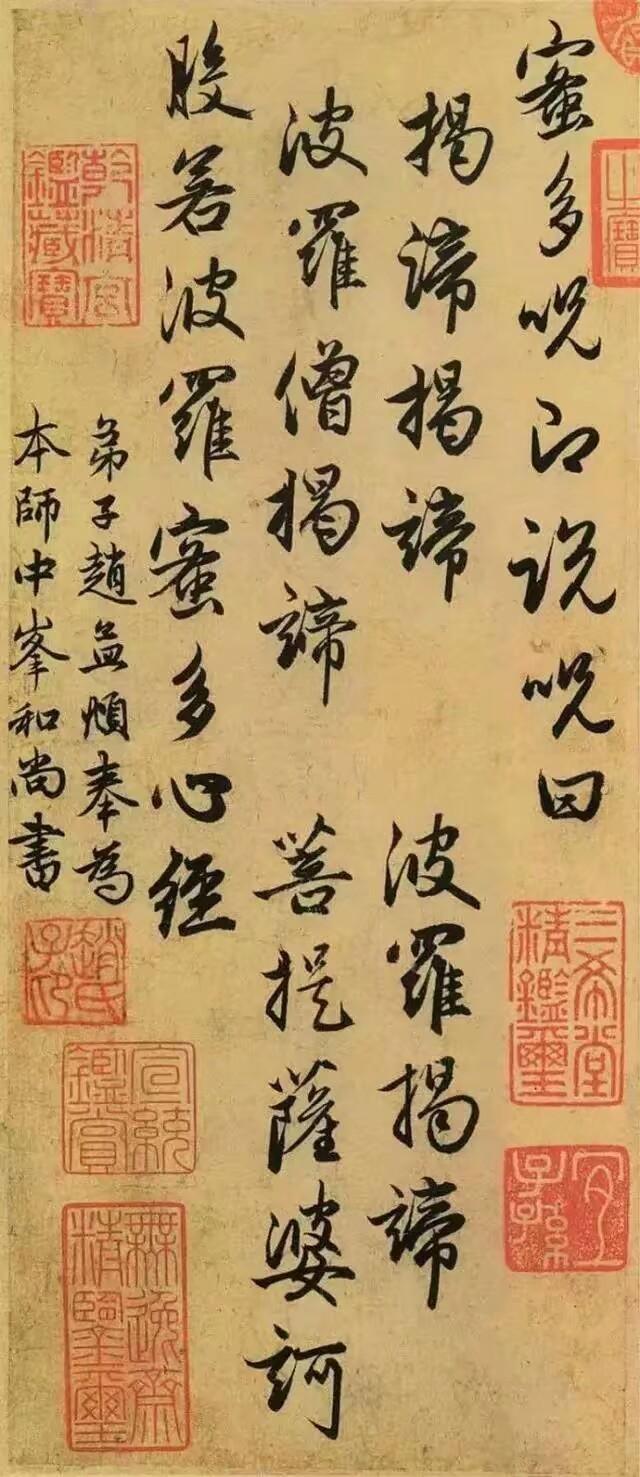 蜜多呪即説呪曰
揭諦揭諦 波羅揭諦
波羅僧揭諦 菩提薩婆訶
般若波羅蜜多心經
弟子趙孟頫奉為
本師中峯和尚書
之寶
三希堂精鑑璽
宜子孫
乾清宮鑑藏寶
趙氏子昂
宣統鑑賞
無逸齋精鑒璽